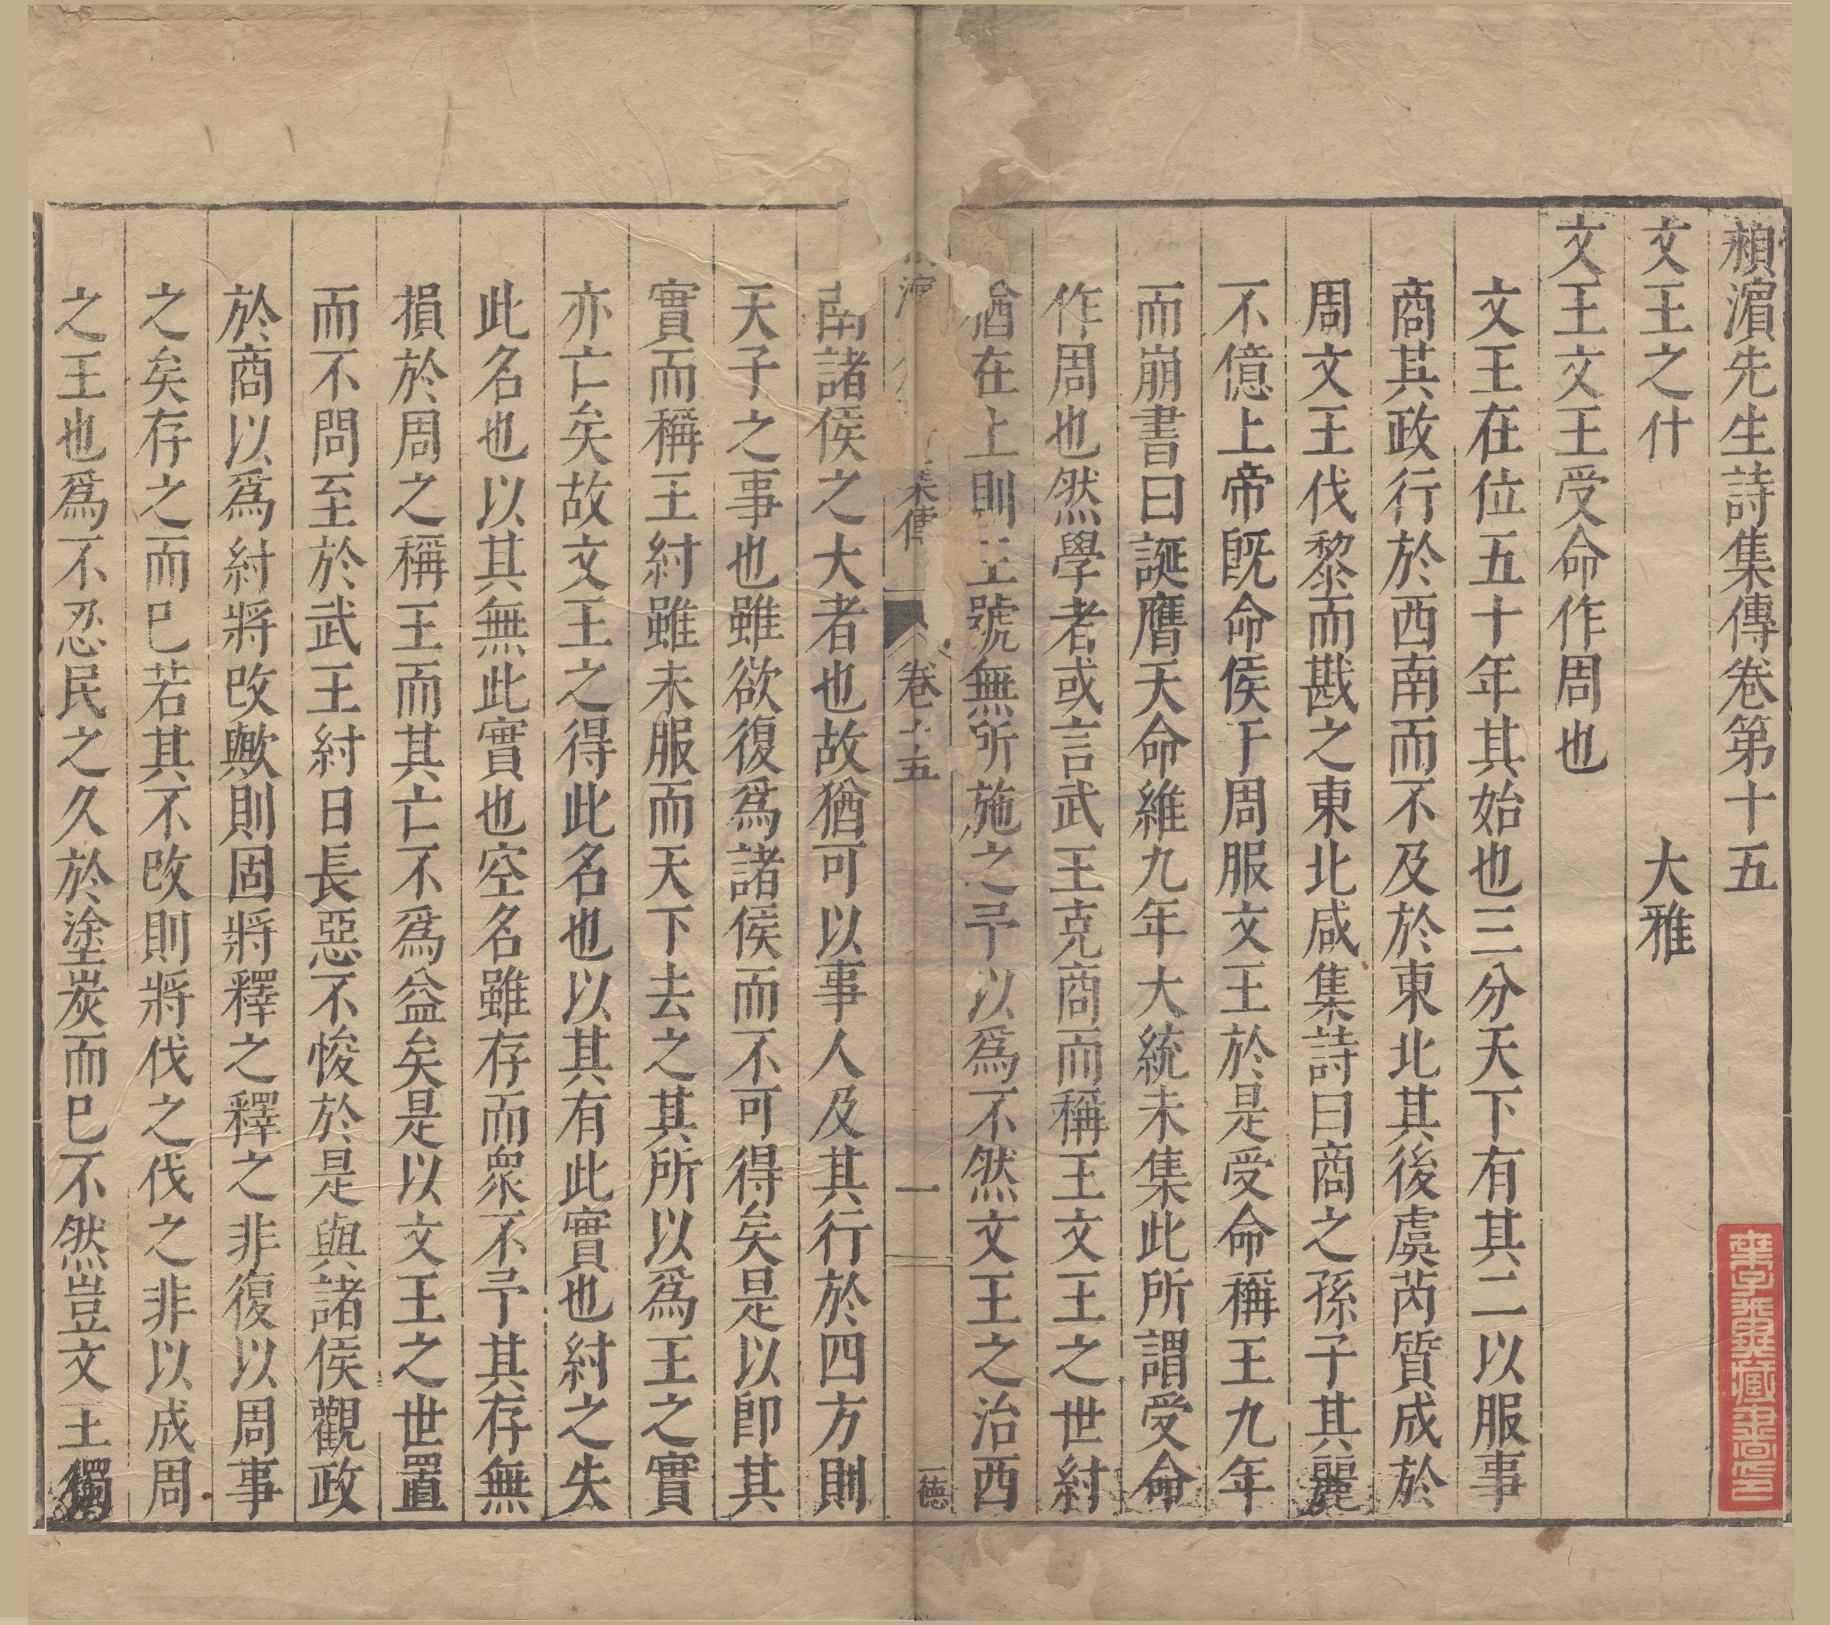 頳濵先生詩集傳卷第十五
文王之什　大雅
文王文王受命作周也
文王在位五十年其始也三分天下有其二以服事
商其政行於西南而不及於東北其後虞芮質成於
周文王伐黎而戡之東北咸集詩曰商之孫子其麗
不億上帝旣命侯于周服文王於是受命稱王九年
而崩書曰誕膺天命維九年大統未集此所謂受命
作周也然學者或言武王克商而稱王文王之世紂
猶在上則王號無所施之予以爲不然文王之治西
南諸侯之大者也故猶可以事人及其行於四方則
天子之事也雖欲復爲諸侯而不可得矣是以卽其
實而稱王紂雖未服而天下去之其所以爲王之實
亦亡矣故文王之得此名也以其有此實也紂之失
此名也以其無此實也空名雖存而衆不予其存無
損於周之稱王而其亡不爲益矣是以文王之世置
而不問至於武王紂日長惡不悛於是與諸侯觀政
於商以爲紂將改歟則固將釋之釋之非復以周事
之矣存之而已若其不改則將伐之伐之非以成周
之王也爲不忍民之久於塗炭而已不然豈文王獨
集傳　卷十五　一　德